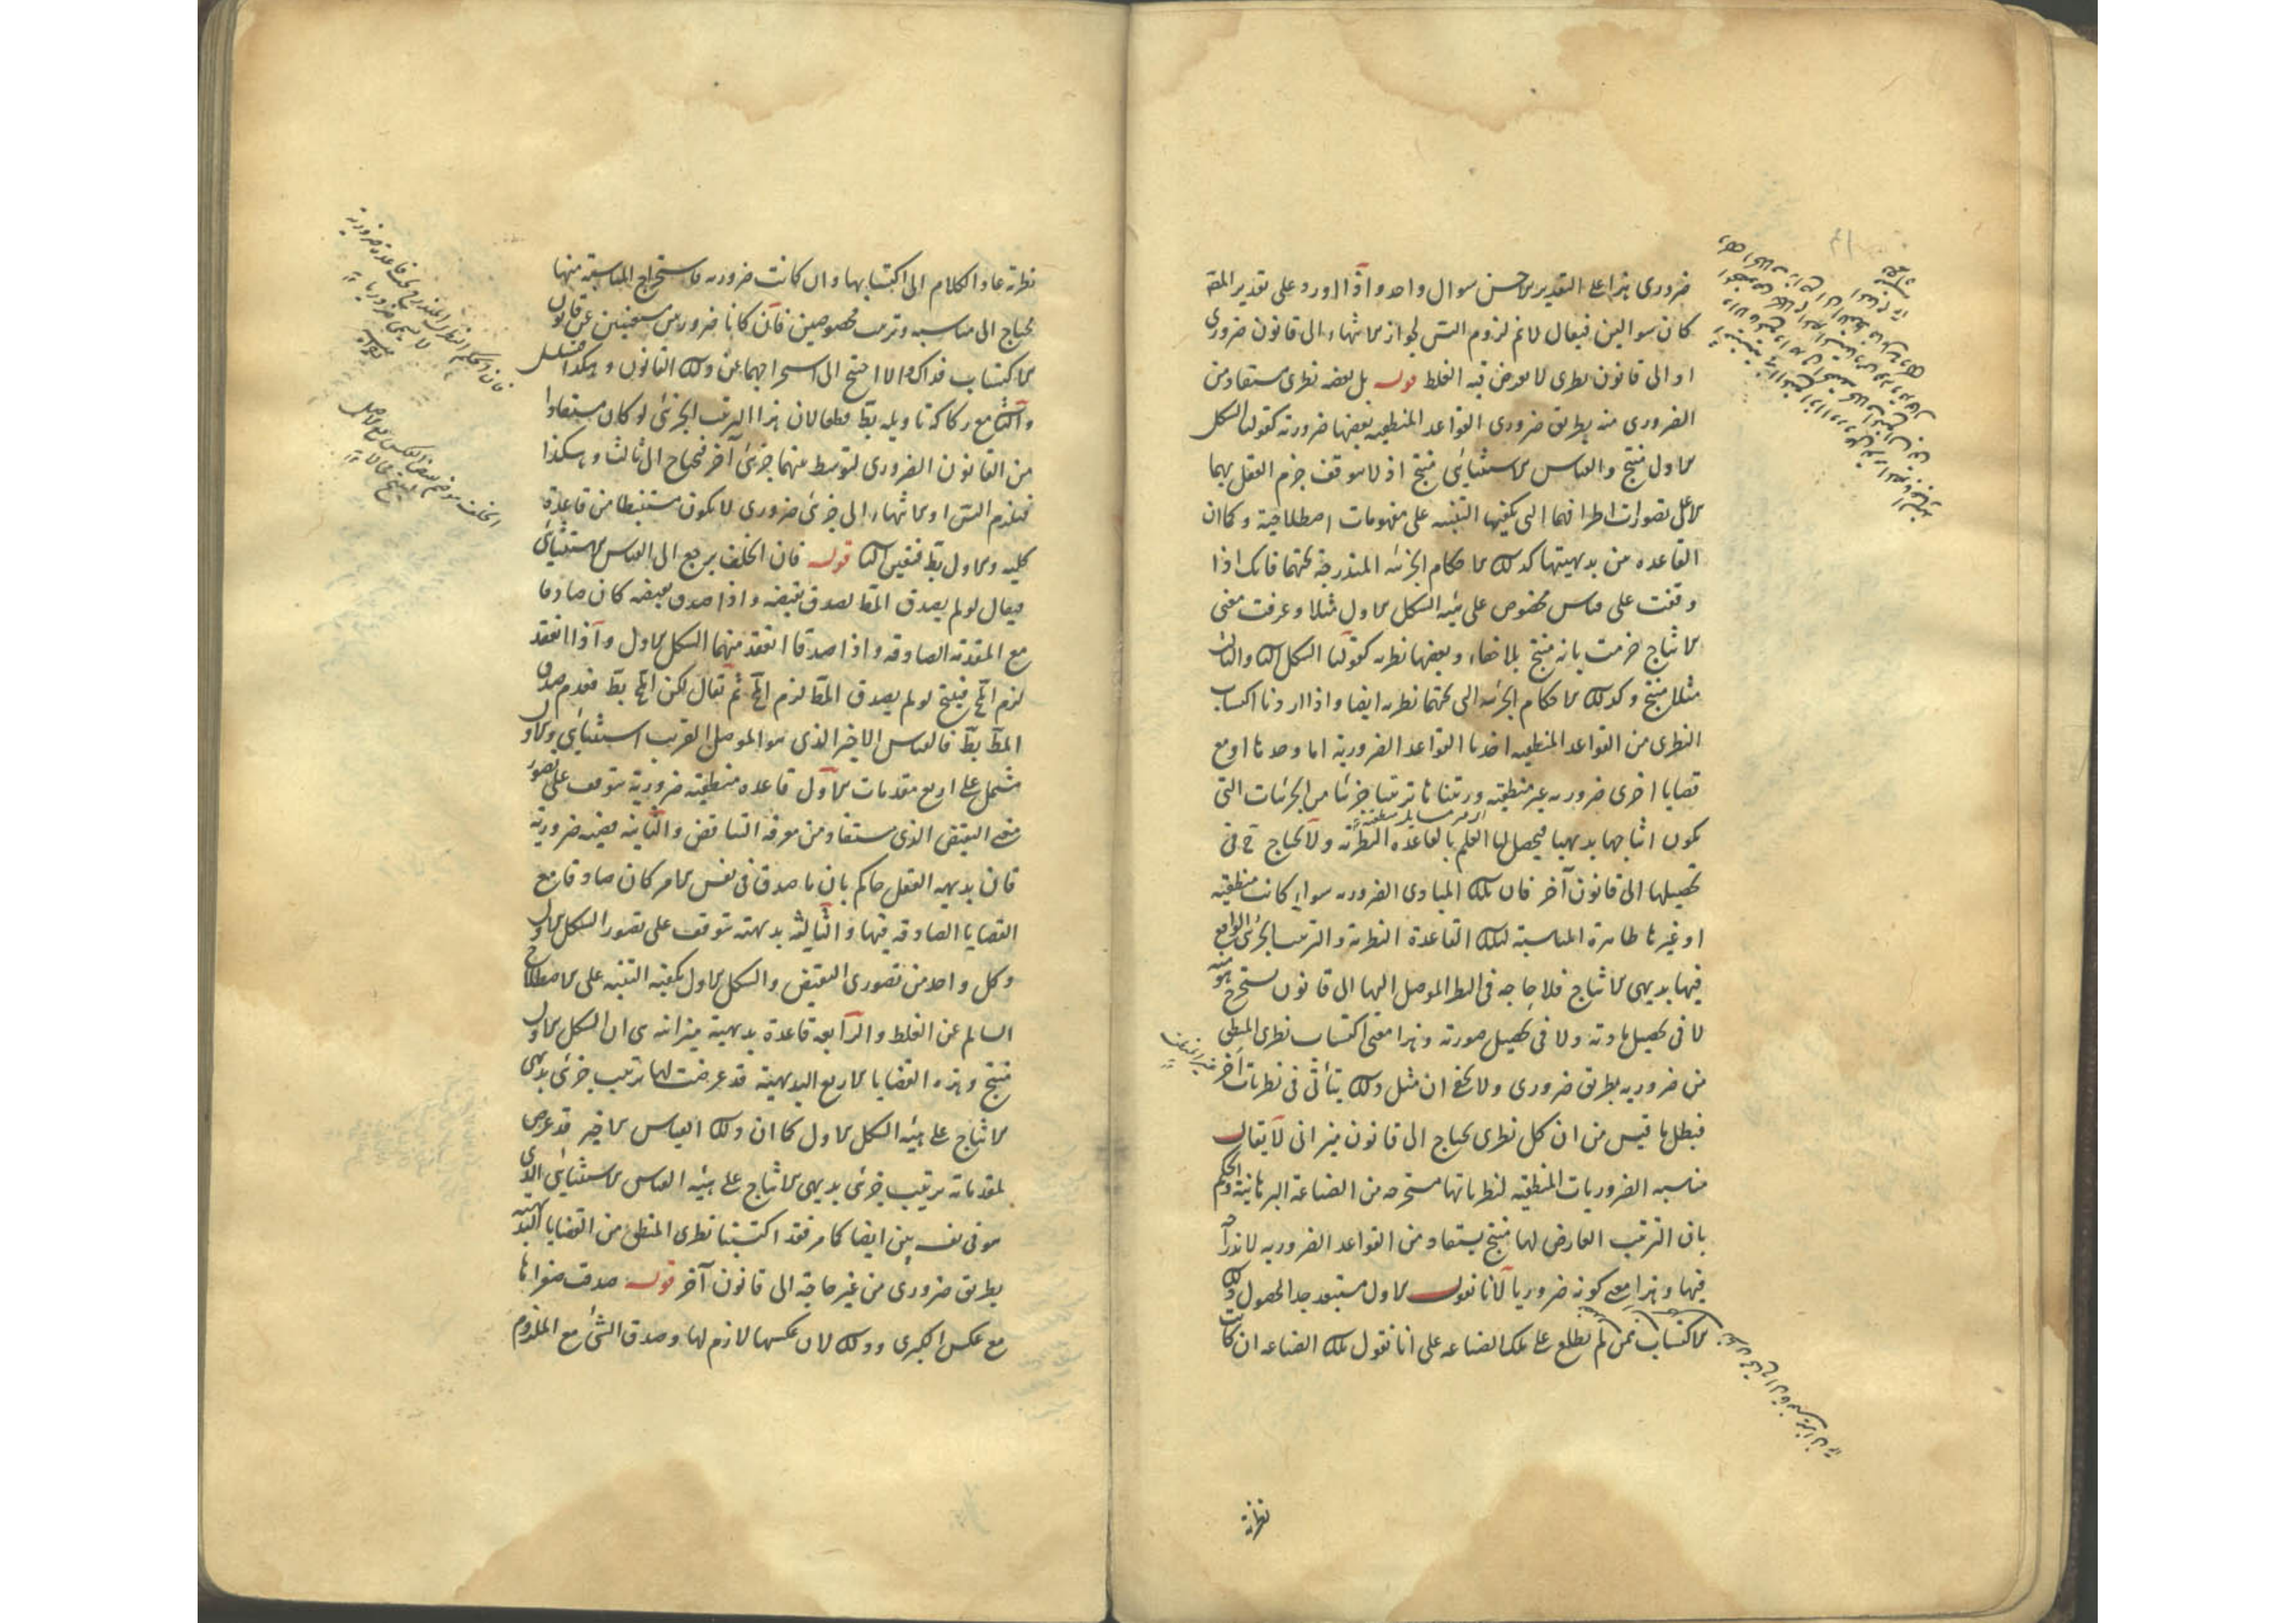 ضروري هذا على التقدير الاحسن سوال واحد واذا اورد على تقدير المقـ
كان سوالين فيقال لا نم لزوم التس لجواز الانتهاء الى قانون ضروري
او الى قانون نظرى لا يعرض فيه الغلط قوله بل بعضه نظرى مستفاد من
الضرورى منه بطريق ضرورى القواعد المنطقيه بعضها ضرورية كقولنا الشكل
الاول منتج والقياس الاستثنائى منتج اذ لا يتوقف جزم العقل بهما
الا على تصورات اطرافهما التى يكفيها التنبيه على مفهومات اصطلاحية وكما ان
القاعده من بديهيتها كذلك الاحكام الجزئيه المندرجة تحتها فانك اذا
وقفت على قياس مخصوص على هيئه الشكل الاول مثلا وعرفت معنى
الانتاج جزمت بانه منتج بلا خفاء وبعضها نظريه كقولنا الشكل الثا والثالث
مثلا منتج وكذلك الاحكام الجزئيه التى تحتها نظريه ايضا واذا اردنا اكتساب
النظرى من القواعد المنطقيه اخذنا القواعد الضرورية اما وحدها او مع
قضايا اخرى ضروريه غير منطقيه ورتبناها ترتيبا جزئيا من الجزئيات التى
يكون انتاجها بديهيا فيحصل لها العلم بالقاعده النظرية ولا يحتاج ح فى
تحصيلها الى قانون آخر فان تلك المبادى الضروريه سواء كانت منطقيه
او غيرها ظاهرة المناسبة لتلك القاعدة النظرية والترتيب الجزئى الواقع
فيها بديهى الانتاج فلا حاجه فى النظر الموصل اليها الى قانون يستخرج منه
لا فى تحصيل مادته ولا فى تحصيل صورته وهذا معنى اكتساب نظرى المنطق
من ضروريه بطريق ضرورى ولا يخفى ان مثل ذلك يتأتى فى نظريات اخر
فبطل ما قيس من ان كل نظرى يحتاج الى قانون ميزانى لا يقال
مناسبه الضروريات المنطقيه لنظرياتها مستخرجه من الصناعة البرهانية والحكم
بان الترتيب العارض لها منتج يستفاد من القواعد الضروريه لاندراجه
فيها وهذا معنى كونه ضروريا لانا نقول الاول مستبعد جدا لحصول ذلك
الاكتساب ممن لم يطلع على تلك الصناعه على انا نقول تلك الصناعه ان كانت
نظرية
نظرية عاد الكلام الى اكتسابها وان كانت ضروريه فاستخراج المناسبة منها
يحتاج الى مناسبه وترتيب مخصوصين فان كانا ضروريين مستغنيين عن قانون
الاكتساب فذاك والا احتيج الى استخراجهما عن ذلك القانون وهكذا فيتسلسل
والثا مع ركاكة تاويله بط قطعا لان هذا الترتيب الجزئى لو كان مستفادا
من القانون الضرورى لتوسط بينهما جزئى آخر فيحتاج الى ثالث وهكذا
فيلزم التس او الانتهاء الى جزئى ضرورى لا يكون مستنبطا من قاعدة
كليه والاول بط فتعين الثا قوله فان الخلف يرجع الى القياس الاستثنائى
فيقال لو لم يصدق المط لصدق نقيضه واذا صدق نقيضه كان صادقا
مع المقدمة الصادقه واذا صدقا انعقد منهما الشكل الاول واذا انعقد
لزم المح فينتج لو لم يصدق المط لزم المح ثم نقال لكن المح بط فعدم صدق
المط بط فالقياس الاخير الذى هو الموصل القريب استثنائى والاول
مشتمل على اربع مقدمات الاول قاعده منطقيه ضرورية يتوقف على تصور
معنى النقيض الذى يستفاد من معرفة التناقض والثانيه قضيه ضرورية
فان بديهه العقل حاكم بان ما صدق فى نفس الامر كان صادقا مع
القضايا الصادقه فيها والثالثه بديهيه يتوقف على تصور الشكل الاول
وكل واحد من تصورى النقيض والشكل الاول يكفيه التنبيه على الاصطلاح
السالم عن الغلط والرابعه قاعدة بديهية ميزانيه هى ان الشكل الاول
منتج وهذه القضايا الاربع البديهية قد عرضت لها ترتيب جزئى بديهى
الانتاج على هيئه الشكل الاول كما ان ذلك القياس الاخير قد عرض
لمقدماته ترتيب جزئى بديهى الانتاج على هيئه القياس الاستثنائى الذى
هو فى نفسه بين ايضا كما مر فقد اكتسبنا نظرى المنطق من القضايا البديهية
بطريق ضرورى من غير حاجة الى قانون آخر قوله صدق صغراها
مع عكس الكبرى وذلك لان عكسها لازم لها وصدق الشئ مع الملزوم
فان الحكم النظرى المندرج تحت قاعدة ضرورية
لا يسمى ضروريا